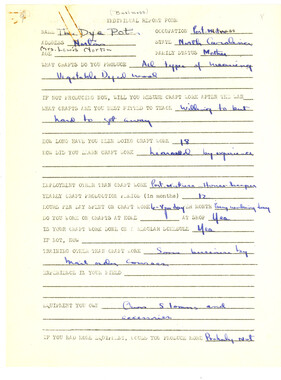 (Business)
INDIVIDUAL REPORT FORM
NAME The Dye Pot OCCUPATION Postmistress
ADDRESS Norton STATE North Carolina
Mrs. Lewis Martin FAMILY STATUS Mother
WHAT CRAFTS DO YOU PRODUCE All types of weaving
Vegetable Dyed wool
IF NOT PRODUCING NOW, WILL YOU RESUME CRAFT WORK AFTER THE WAR
WHAT CRAFTS ARE YOU BEST FITTED TO TEACH Willing to but
hard to get away
HOW LONG HAVE YOU BEEN DOING CRAFT WORK 18
HOW DID YOU LEARN CRAFT WORK Learned by experience
EMPLOYMENT OTHER THAN CRAFT WORK Post mistress House keeper
YEARLY CRAFT PRODUCTION PERIOD (in months) 12
HOURS PER DAY SPENT ON CRAFT WORK DO MONTH Every working day
DO YOU WORK ON CRAFTS AT HOME AT SHOP Yes
IS YOUR CRAFT WORK DONE ON A REGULAR SCHEDULE Yes
IF NOT, HOW
TRAINING OTHER THAN CRAFT WORK Some business by
mail order courses
EXPERIENCE IN YOUR FIELD
EQUIPMENT YOU OWN Own 5 looms and
accessories
IF YOU HAD MORE EQUIPMENT, WOULD YOU PRODUCE MORE Probably not